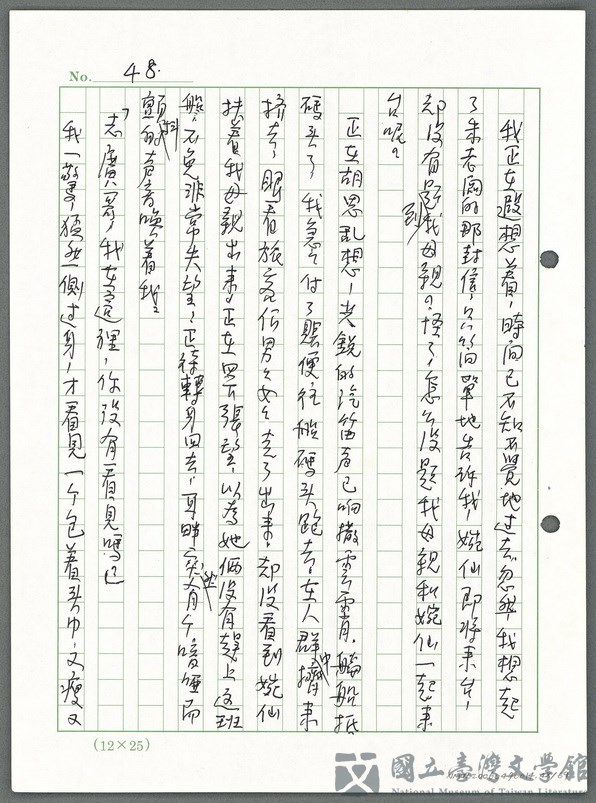 No. 48.
我正在遐想着,時间已不知不覺地过去忽然,我想起
了朱老闆的那封信,只简單地告訴我,婉仙即將来台,
却没有提到我母親。怪了,怎么没題我母親和婉仙一起来
台呢?
正在胡思乱想,尖銳的汽笛声已响撤雲霄,輪船抵
碼头了,我急々付了賬便往船碼头跑去,在人群中擠来
擠去,眼看旅客们男男女女走了出来,却没看到婉仙
扶着我母親出来。正在四下張望,以為她俩没有趕上這班
船,不免非常失望,正待轉身回去,耳畔突然有个喑啞而
顫抖的声音喚着我:
「志廣哥,我在這裡,你没有看見嗎?」
我一驚,猛然一側过身,才看見一个包着头巾,又瘦又
(12×25)
國立臺灣文學館
National Museum of Taiwan Literature